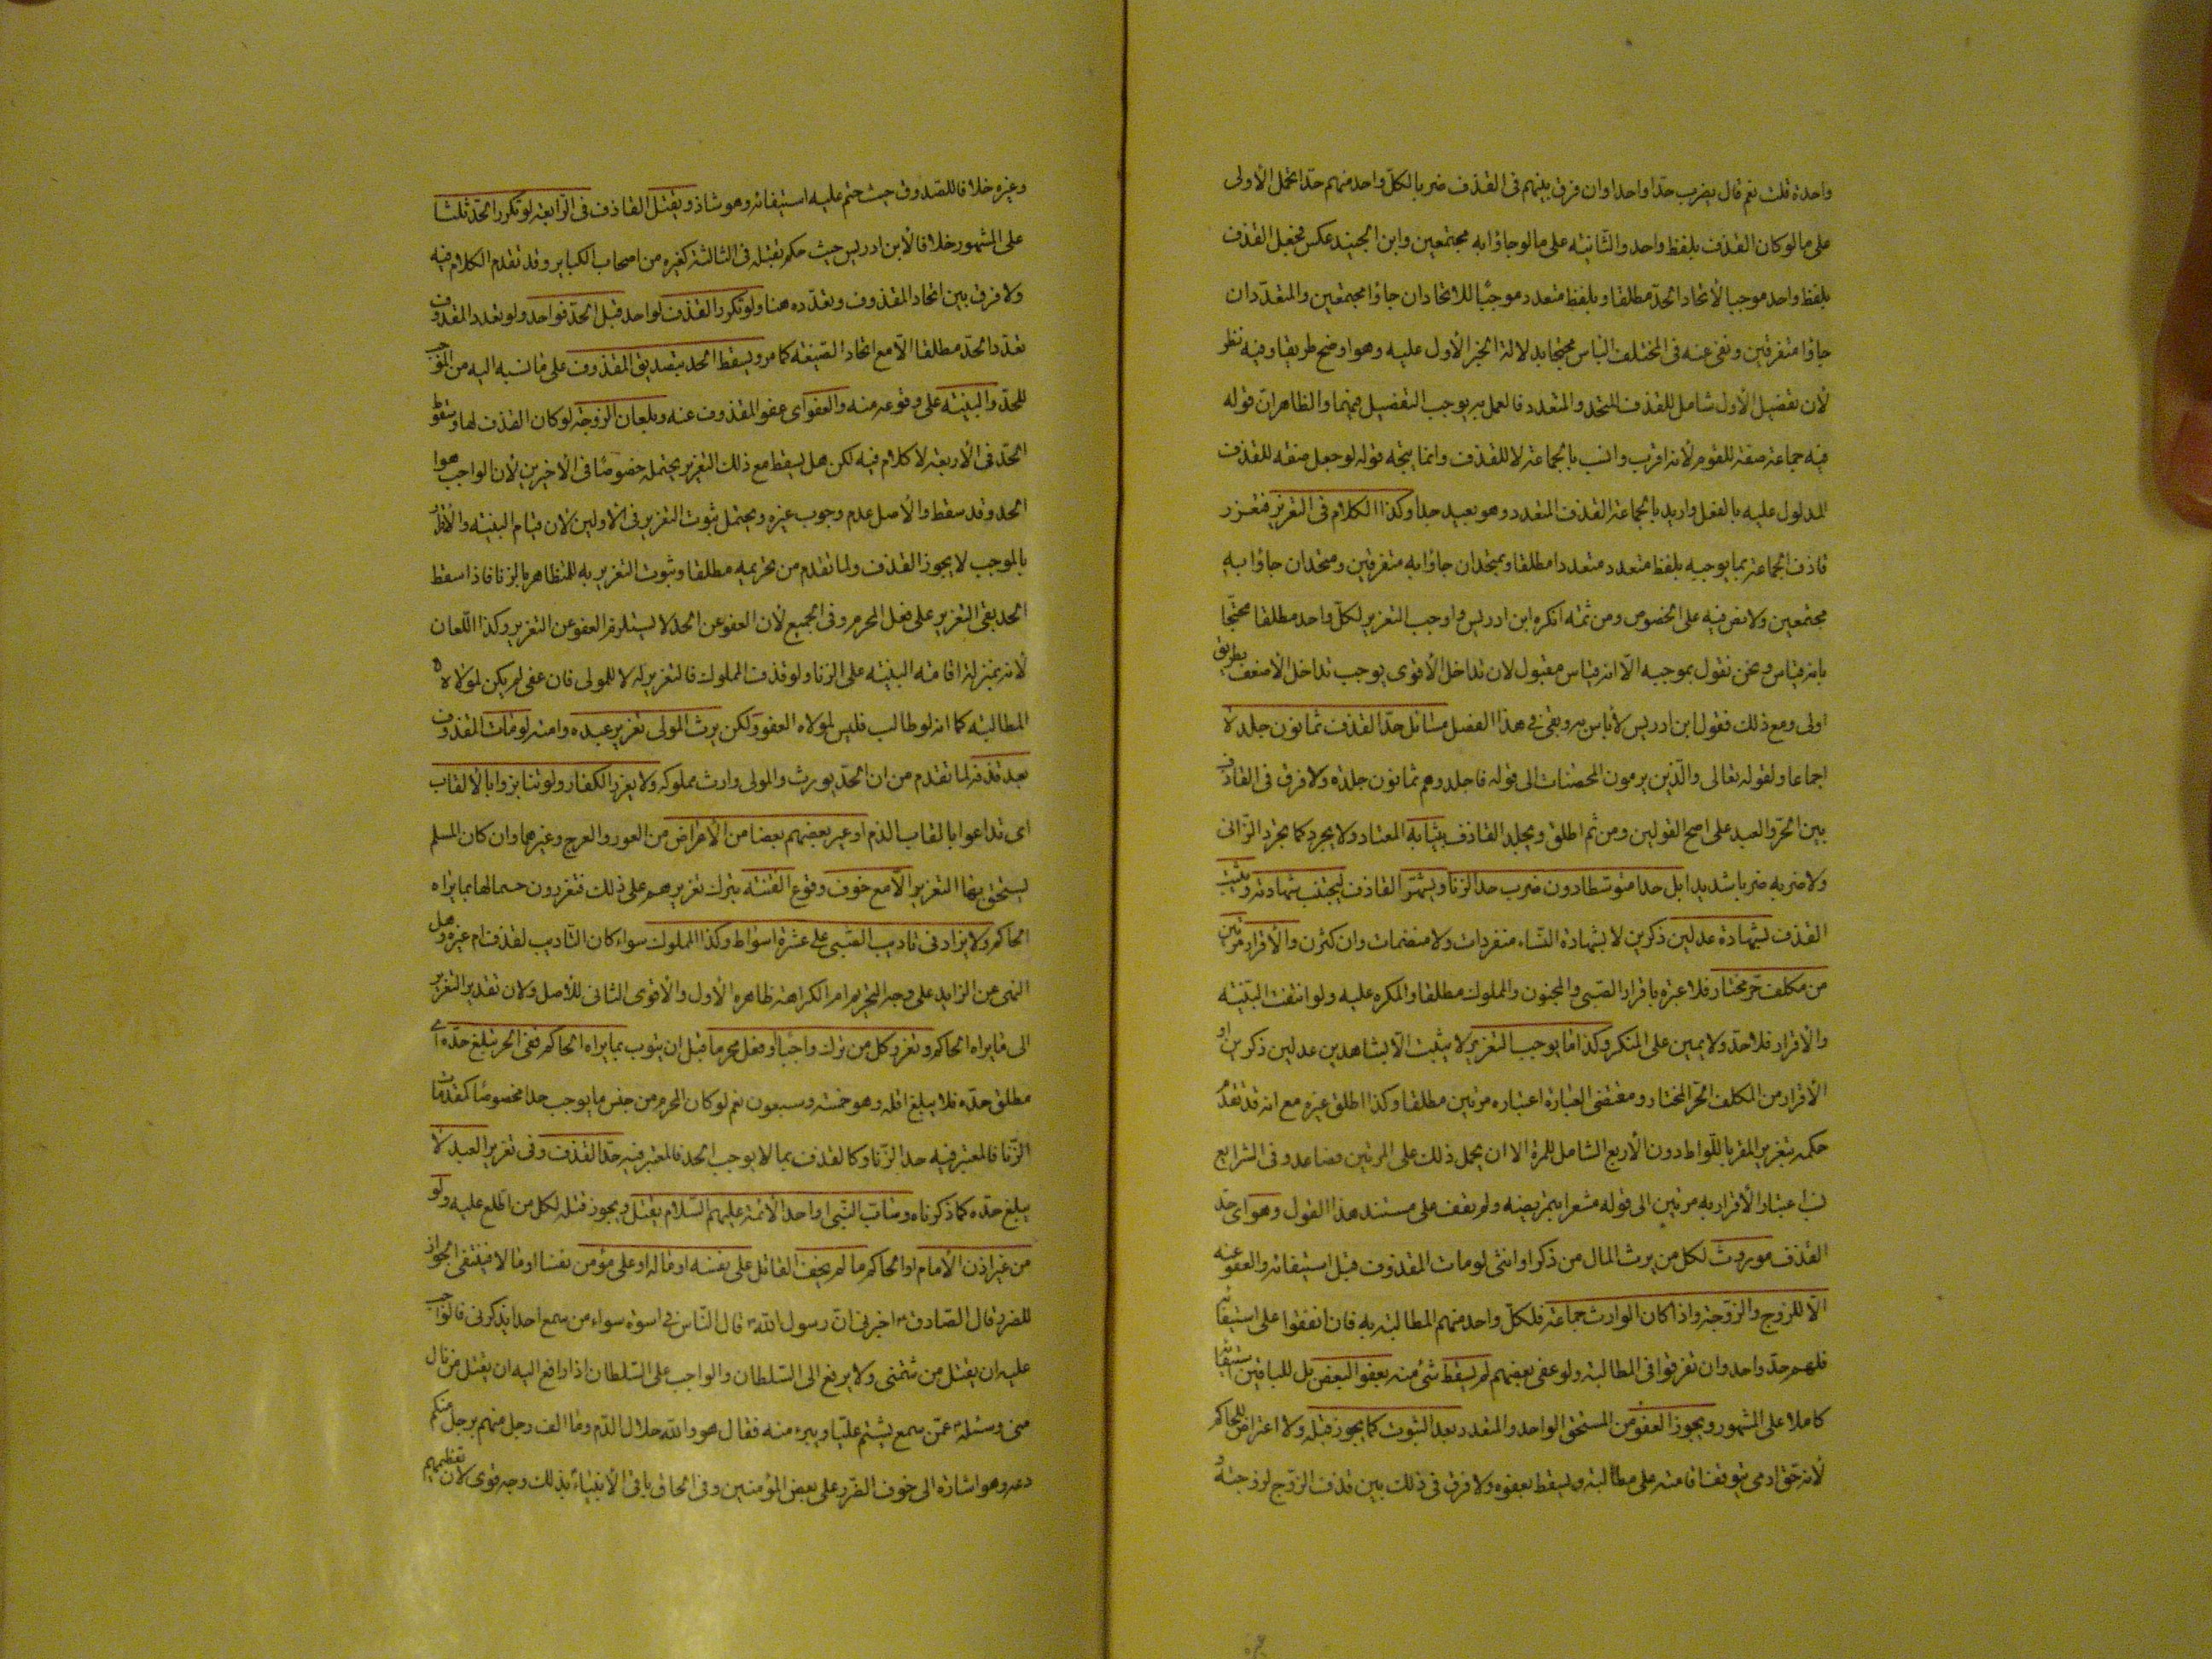 واحدة قلت نعم قال يضرب حدا واحدا وان فرق بينهم فى القذف ضرب لكل واحد منهم حدا بحمل الأولى
على ما لو كان القذف بلفظ واحد والثانية على ما لو جاؤا به مجتمعين وابن الجنيد عكس فجعل القذف
بلفظ واحد موجبا لأتحاد الحد مطلقا وبلفظ متعدد موجبا للاتحاد ان جاؤا مجتمعين والمتعدد ان
جاؤا متفرقين ونفى عنه فى المختلف الباس محتجا بدلالة الخبر الأول عليه وهو اوضح طريقا وفيه نظر
لأن تفصيل الأول شامل للقذف المتحد والمتعدد فالعمل به يوجب التفصيل فيهما والظاهر ان قوله
فيه جماعة صفة للقوم لأنه اقرب وانسب بالجماعة لا للقذف وانما يتجه قوله لو جعل صفة للقذف
المدلول عليه بالفعل واريد بالجماعة القذف المتعدد وهو بعيد جدا وكذا الكلام فى التعزير فيعزر
قاذف الجماعة بما يوجبه بلفظ متعدد متعددا مطلقا وبمتحد ان جاؤا به متفرقين ومتحدا ان جاؤا به
مجتمعين ولا نص فيه على الخصوص ومن ثمة انكره ابن ادريس واوجب التعزير لكل واحد مطلقا محتجا
بانه قياس ونحن نقول بموجبه الا انه قياس مقبول لان تداخل الأقوى يوجب تداخل الأضعف بطريق
اولى ومع ذلك فقول ابن ادريس لا بأس به وبقى فى هذا الفصل مسائل حد القذف ثمانون جلدة
اجماعا ولقوله تعالى والذين يرمون المحصنات الى قوله فاجلدوهم ثمانون جلدة ولا فرق فى القاذف
بين الحر والعبد على اصح القولين ومن ثم اطلق ويجلد القاذف بثيابه المعتاد ولا يجرد كما يجرد الزانى
ولا ضربه ضربا شديدا بل حدا متوسطا دون ضرب حد الزنا ويشهر القاذف ليجتنب شهادته ويثبت
القذف بشهادة عدلين ذكرين لا بشهادة النساء منفردات ولا منضمات وان كثرن والأقرار مرتين
من مكلف حر مختار فلا عبرة باقرار الصبى والمجنون والمملوك مطلقا والمكره عليه ولو انتفت البينة
والأقرار فلا حد ولا يمين على المنكر وكذا ما يوجب التعزير لا يثبت الا بشاهدين عدلين ذكرين او
الأقرار من المكلف الحر المختار ومقتضى العبارة اعتباره مرتين مطلقا وكذا اطلق غيره مع انه قد تقدم
حكمه بتعزير المقر باللواط دون الأربع الشامل للمرة الا ان يحمل ذلك على المرتين فصاعدا وفى الشرايع
نسب اعتبار الأقرار به مرتين الى قوله مشعرا بتمريضه ولم نقف على مستند هذا القول وهو اى حد
القذف موروث لكل من يرث المال من ذكر او انثى لو مات المقذوف قبل استيفائه والعفو عنه
الا للزوج والزوجة واذا كان الوارث جماعة فلكل واحد منهم المطالبة به فان اتفقوا على استيفائه
فلهم حد واحد وان تفرقوا فى المطالبة ولو عفى بعضهم لم يسقط شئ منه بعفو البعض بل للباقين استيفائه
كاملا على المشهور ويجوز العفو من المستحق الواحد والمتعدد بعد الثبوت كما يجوز قبله ولا اعتراض للحاكم
لأنه حق ادمى يتوقف اقامته على مطالبته ويسقط بعفوه ولا فرق فى ذلك بين قذف الزوج لزوجته و
وغيره خلافا للصدوق حيث حتم عليه استيفائه وهو شاذ ويقتل القاذف فى الرابعة لو تكرر الحد ثلثا
على المشهور خلافا لأبن ادريس حيث حكم بقتله فى الثالثة كغيره من اصحاب الكباير وقد تقدم الكلام فيه
ولا فرق بين اتحاد المقذوف وتعدده هنا ولو تكرر القذف لواحد قبل الحد فواحد ولو تعدد المقذوف
تعدد الحد مطلقا الا مع اتحاد الصيغة كما مر ويسقط الحد بتصديق المقذوف على ما نسبه اليه من الموجب
للحد والبينة على وقوعه منه والعفو اى عفو المقذوف عنه وبلعان الزوجة لو كان القذف لها وسقوط
الحد فى الأربعة لا كلام فيه لكن هل يسقط مع ذلك التعزير يحتمله خصوصا فى الأخيرين لأن الواجب هو
الحد وقد سقط والأصل عدم وجوب غيره ويحتمل ثبوت التعزير فى الاولين لان قيام البينة والأقرار
بالموجب لا يجوز القذف ولما تقدم من تحريمه مطلقا وثبوت التعزير به للمتظاهر بالزنا فاذا سقط
الحد بقى التعزير على فعل المحرم وفى الجميع لأن العفو عن الحد لا يستلزم العفو عن التعزير وكذا اللعان
لأنه بمنزلة اقامة البينة على الزنا ولو قذف المملوك فالتعزير له لا للمولى فان عفى لم يكن لمولاه
المطالبة كما انه لو طالب فليس لمولاه العفو ولكن يرث المولى تعزير عبده وامته لو مات المقذوف
بعد قذفه لما تقدم من ان الحد يورث والمولى وارث مملوكه ولا يعزر الكفار ولو تنابزوا بالألقاب
اى تداعوا بالقاب الذم او عير بعضهم بعضا من الأمراض من العور والعرج وغيرهما وان كان المسلم
يستحق بها التعزير الا مع خوف وقوع الفتنة بترك تعزيرهم على ذلك فتعزرون حسما لها بما يراه
الحاكم ولا يزاد فى تاديب الصبى على عشرة اسواط وكذا المملوك سواء كان التاديب لقذف ام غيره وهل
النهى عن الزايد على وجه التحريم ام الكراهة ظاهره الأول والأقوى الثانى للأصل ولان تقدير التعزير
الى ما يراه الحاكم ويعزر كل من ترك واجبا او فعل محرما قبل ان يتوب بما يراه الحاكم ففى الحر تبلغ حده اى
مطلق حده فلا يبلغ اقله وهو خمسة وسبعون نعم لو كان المحرم من جنس ما يوجب حدا مخصوصا كمقدمات
الزنا فالمعتبر فيه حد الزنا وكالقذف بما لا يوجب الحد فالمعتبر فيه حد القذف وفى تعزير العبد لا
يبلغ حده كما ذكرناه وساب النبى او احد الأئمة عليهم السلام يقتل ويجوز قتله لكل من اطلع عليه ولو
من غير اذن الأمام او الحاكم ما لم يخف القاتل على نفسه او ماله او على مؤمن نفسا او مالا فينتفى الجواز
للضرر قال الصادق اخبرنى ان رسول الله قال الناس فى اسوة سواء من سمع احدا يذكرنى فالواجب
عليه ان يقتل من شتمنى ولا يرفع الى السلطان والواجب على السلطان اذا رافع اليه ان يقتل من نال
منى وسئل عمن سمع يشتم عليا ويبرء منه فقال هو والله حلال الدم وما الف رجل منهم برجل منكم
دعه وهو اشارة الى خوف الضرر على بعض المؤمنين وفى الحاق باقى الأنبياء بذلك وجه قوى لأن تعظيمهم